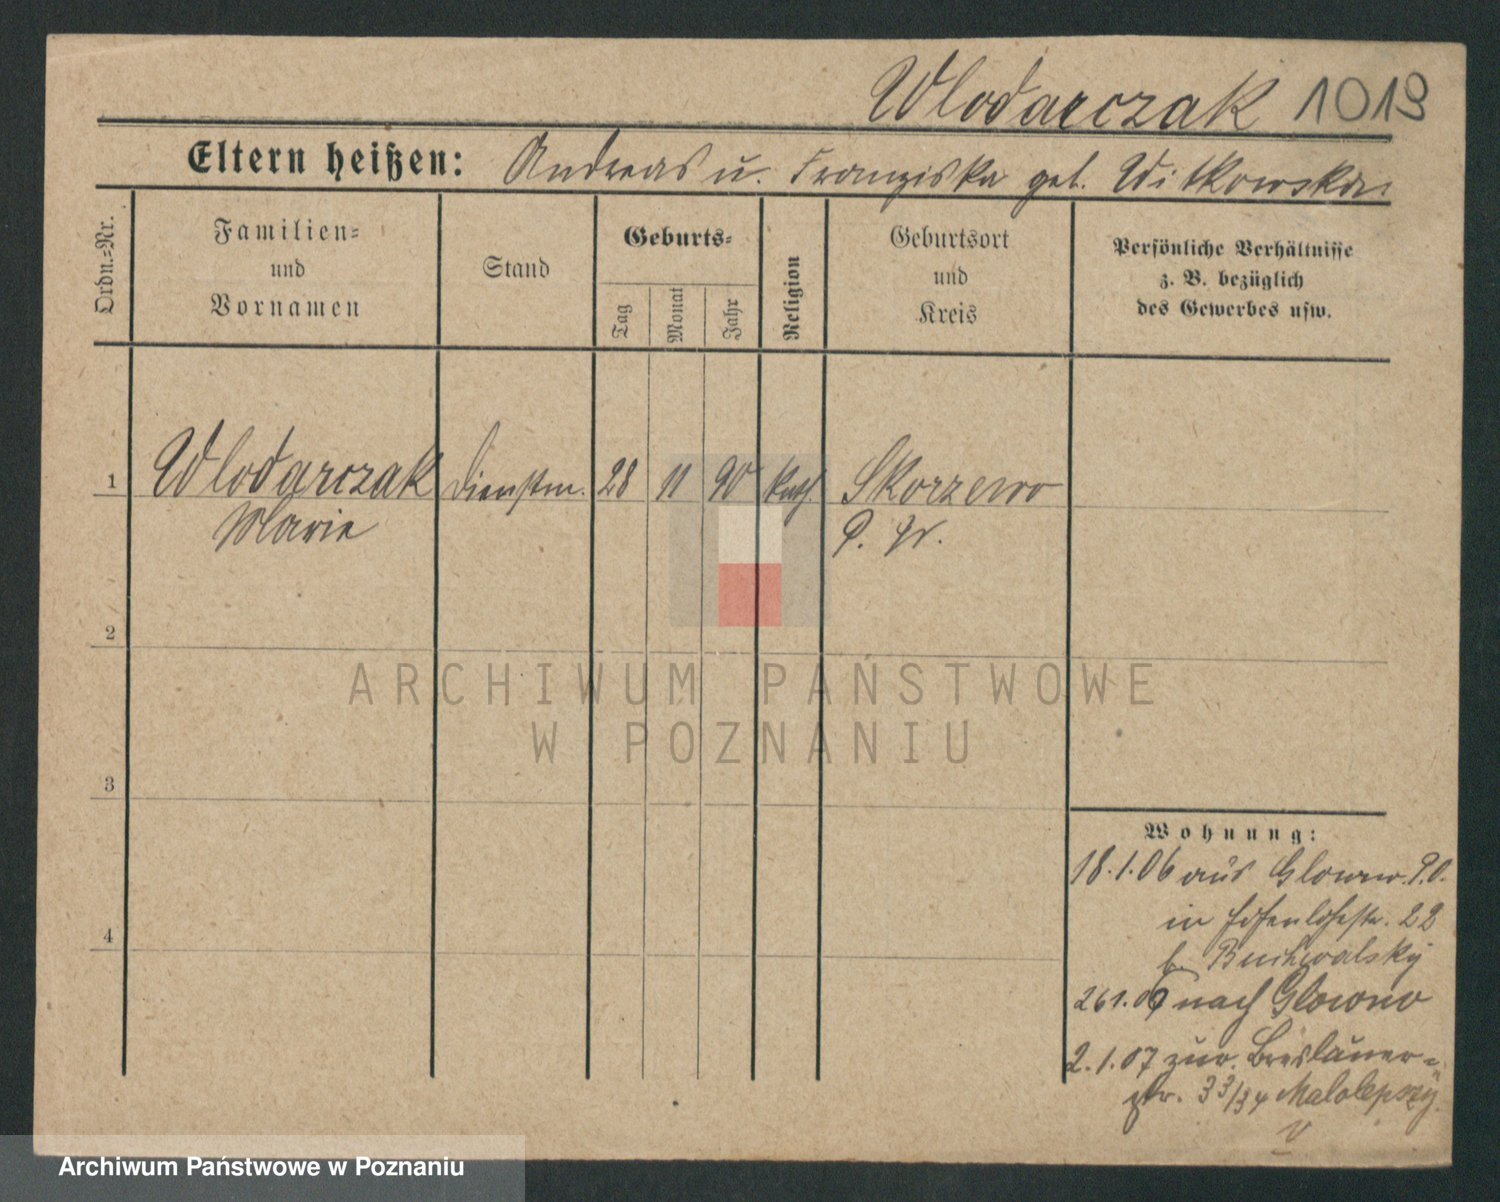 Wlodarczak 1019
Eltern heißen: Andreas u. Franziska geb. Witkowska
Ordn.=Nr.
Familien=
und
Vornamen
Stand
Geburts=
Tag
Monat
Jahr
Religion
Geburtsort
und
Kreis
Persönliche Verhältnisse
z. B. bezüglich
des Gewerbes usw.
1 Wlodarczak Dienstm. 28 11 90 kath. Skorzewo
Marie P.
2
3
4
ARCHIWUM PAŃSTWOWE
W POZNANIU
Wohnung:
18.1.06 aus Glowno. P.O.
in Hohenlohestr. 22
b. Buchwalsky
26 1.06 nach Glowno
2.1.07 zur. Breslauer=
str. 33/34 Malolepszy
Archiwum Państwowe w Poznaniu